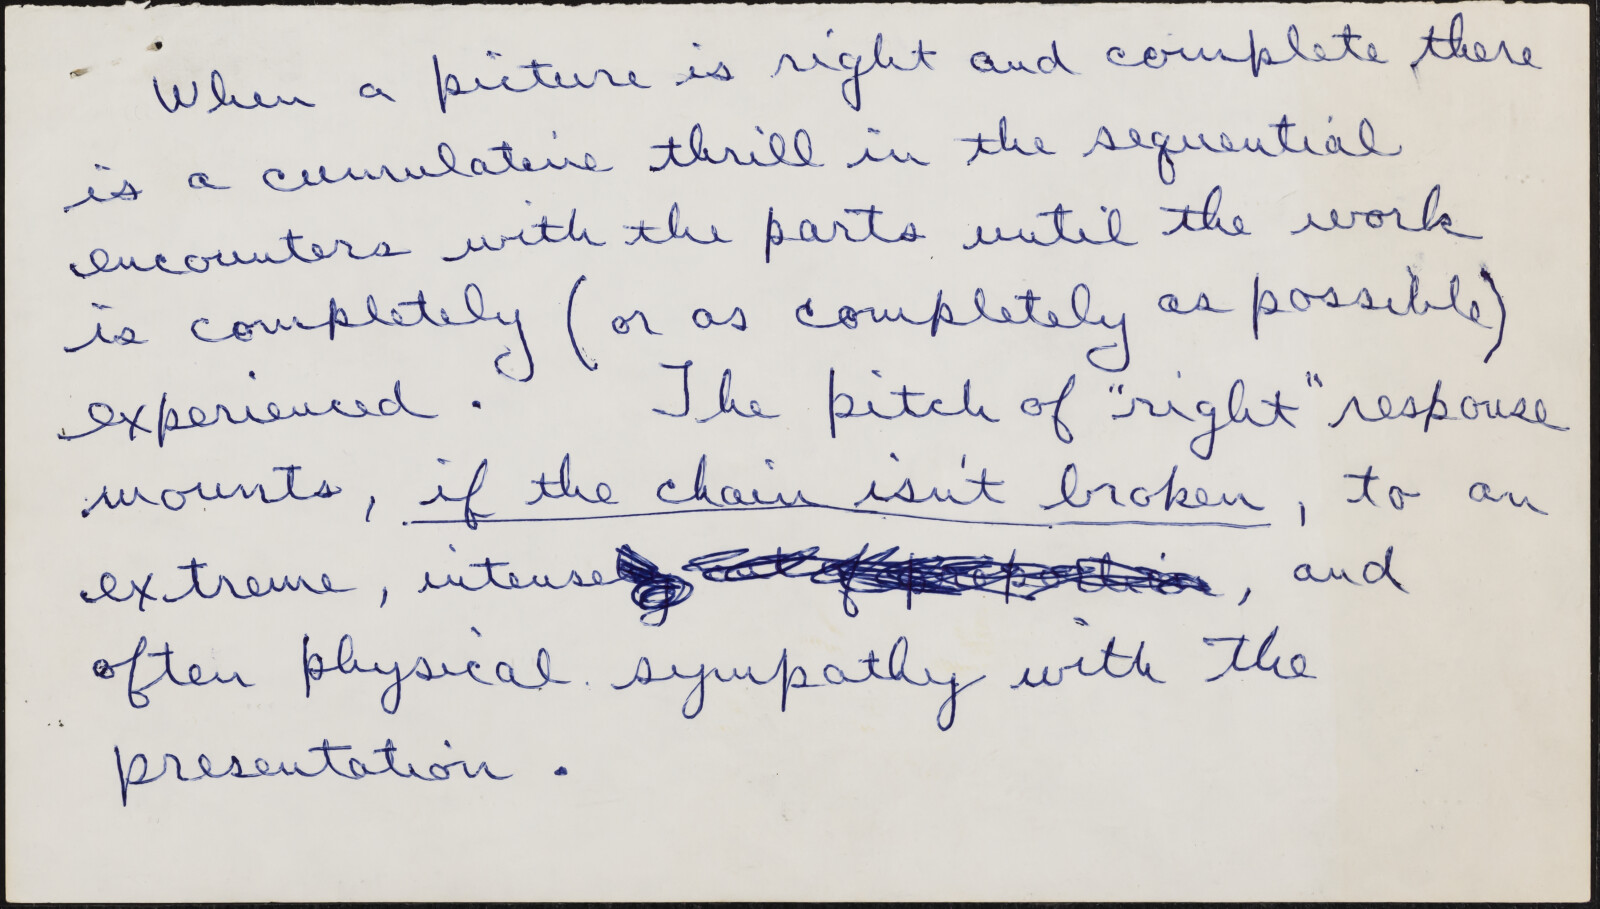 When a picture is right and complete, there
is a cumulative thrill in the sequential
encounters with the parts until the work
is completely (or as completely as possible)
experienced. The pitch of "right" response
mounts, if the chain isn't broken, to an
extreme, intense, and
often physical sympathy with the
presentation.